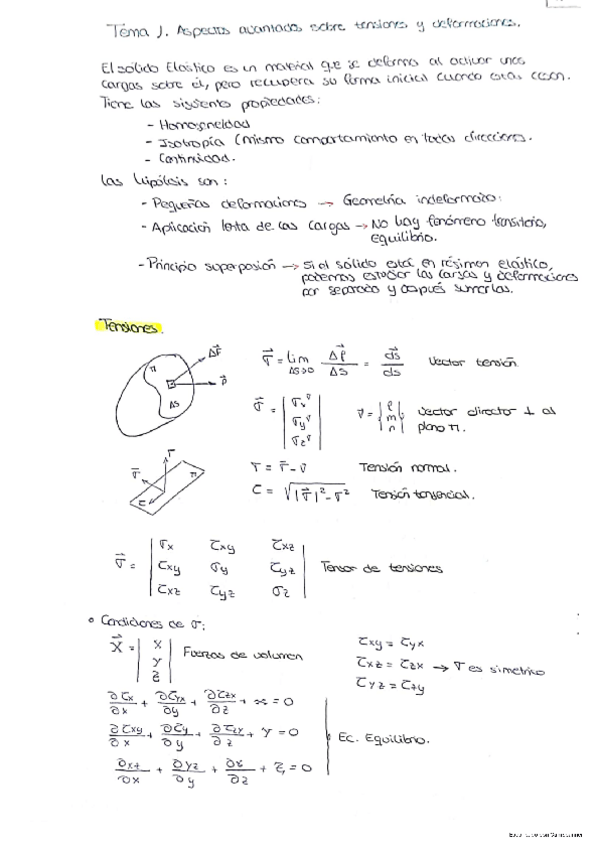 Tema 1. Aspectos avanzados sobre tensiones y deformaciones.
El sólido Elástico es un material que se deforma al activar unas
cargas sobre él, pero recupera su forma inicial cuando estas cesan.
Tiene las siguientes propiedades:
- Homogeneidad
- Isotropía (mismo comportamiento en todas direcciones.
- Continuidad.
Las hipótesis son:
- Pequeñas deformaciones → Geometría indeformada.
- Aplicación lenta de las cargas → No hay fenómeno transitorio,
equilibrio.
- Principio superposión → Si el sólido está en régimen elástico,
podemos estudiar las cargas y deformaciones
por separado y después sumarlas.
Tensiones.
π ΔS ΔF ν
σ = lim ΔS→0 ΔF/ΔS = ds/ds Vector tensión
σ = | σx^ν σy^ν σz^ν | ν = | l m n | Vector director ⊥ al
plano π.
σ = σ - ν Tensión normal.
τ = √|σ|² - σ² Tensión tangencial.
σ = | σx τxy τxz |
| τxy σy τyz | Tensor de tensiones
| τxz τyz σz |
• Condiciones de σ:
X = | X Y Z | Fuerzas de volumen
τxy = τyx
τxz = τzx → σ es simétrico
τyz = τzy
∂τx/∂x + ∂τyx/∂y + ∂τzx/∂z + x = 0
∂τxy/∂x + ∂τy/∂y + ∂τzy/∂z + Y = 0 Ec. Equilibrio.
∂xz/∂x + ∂yz/∂y + ∂z/∂z + Z = 0